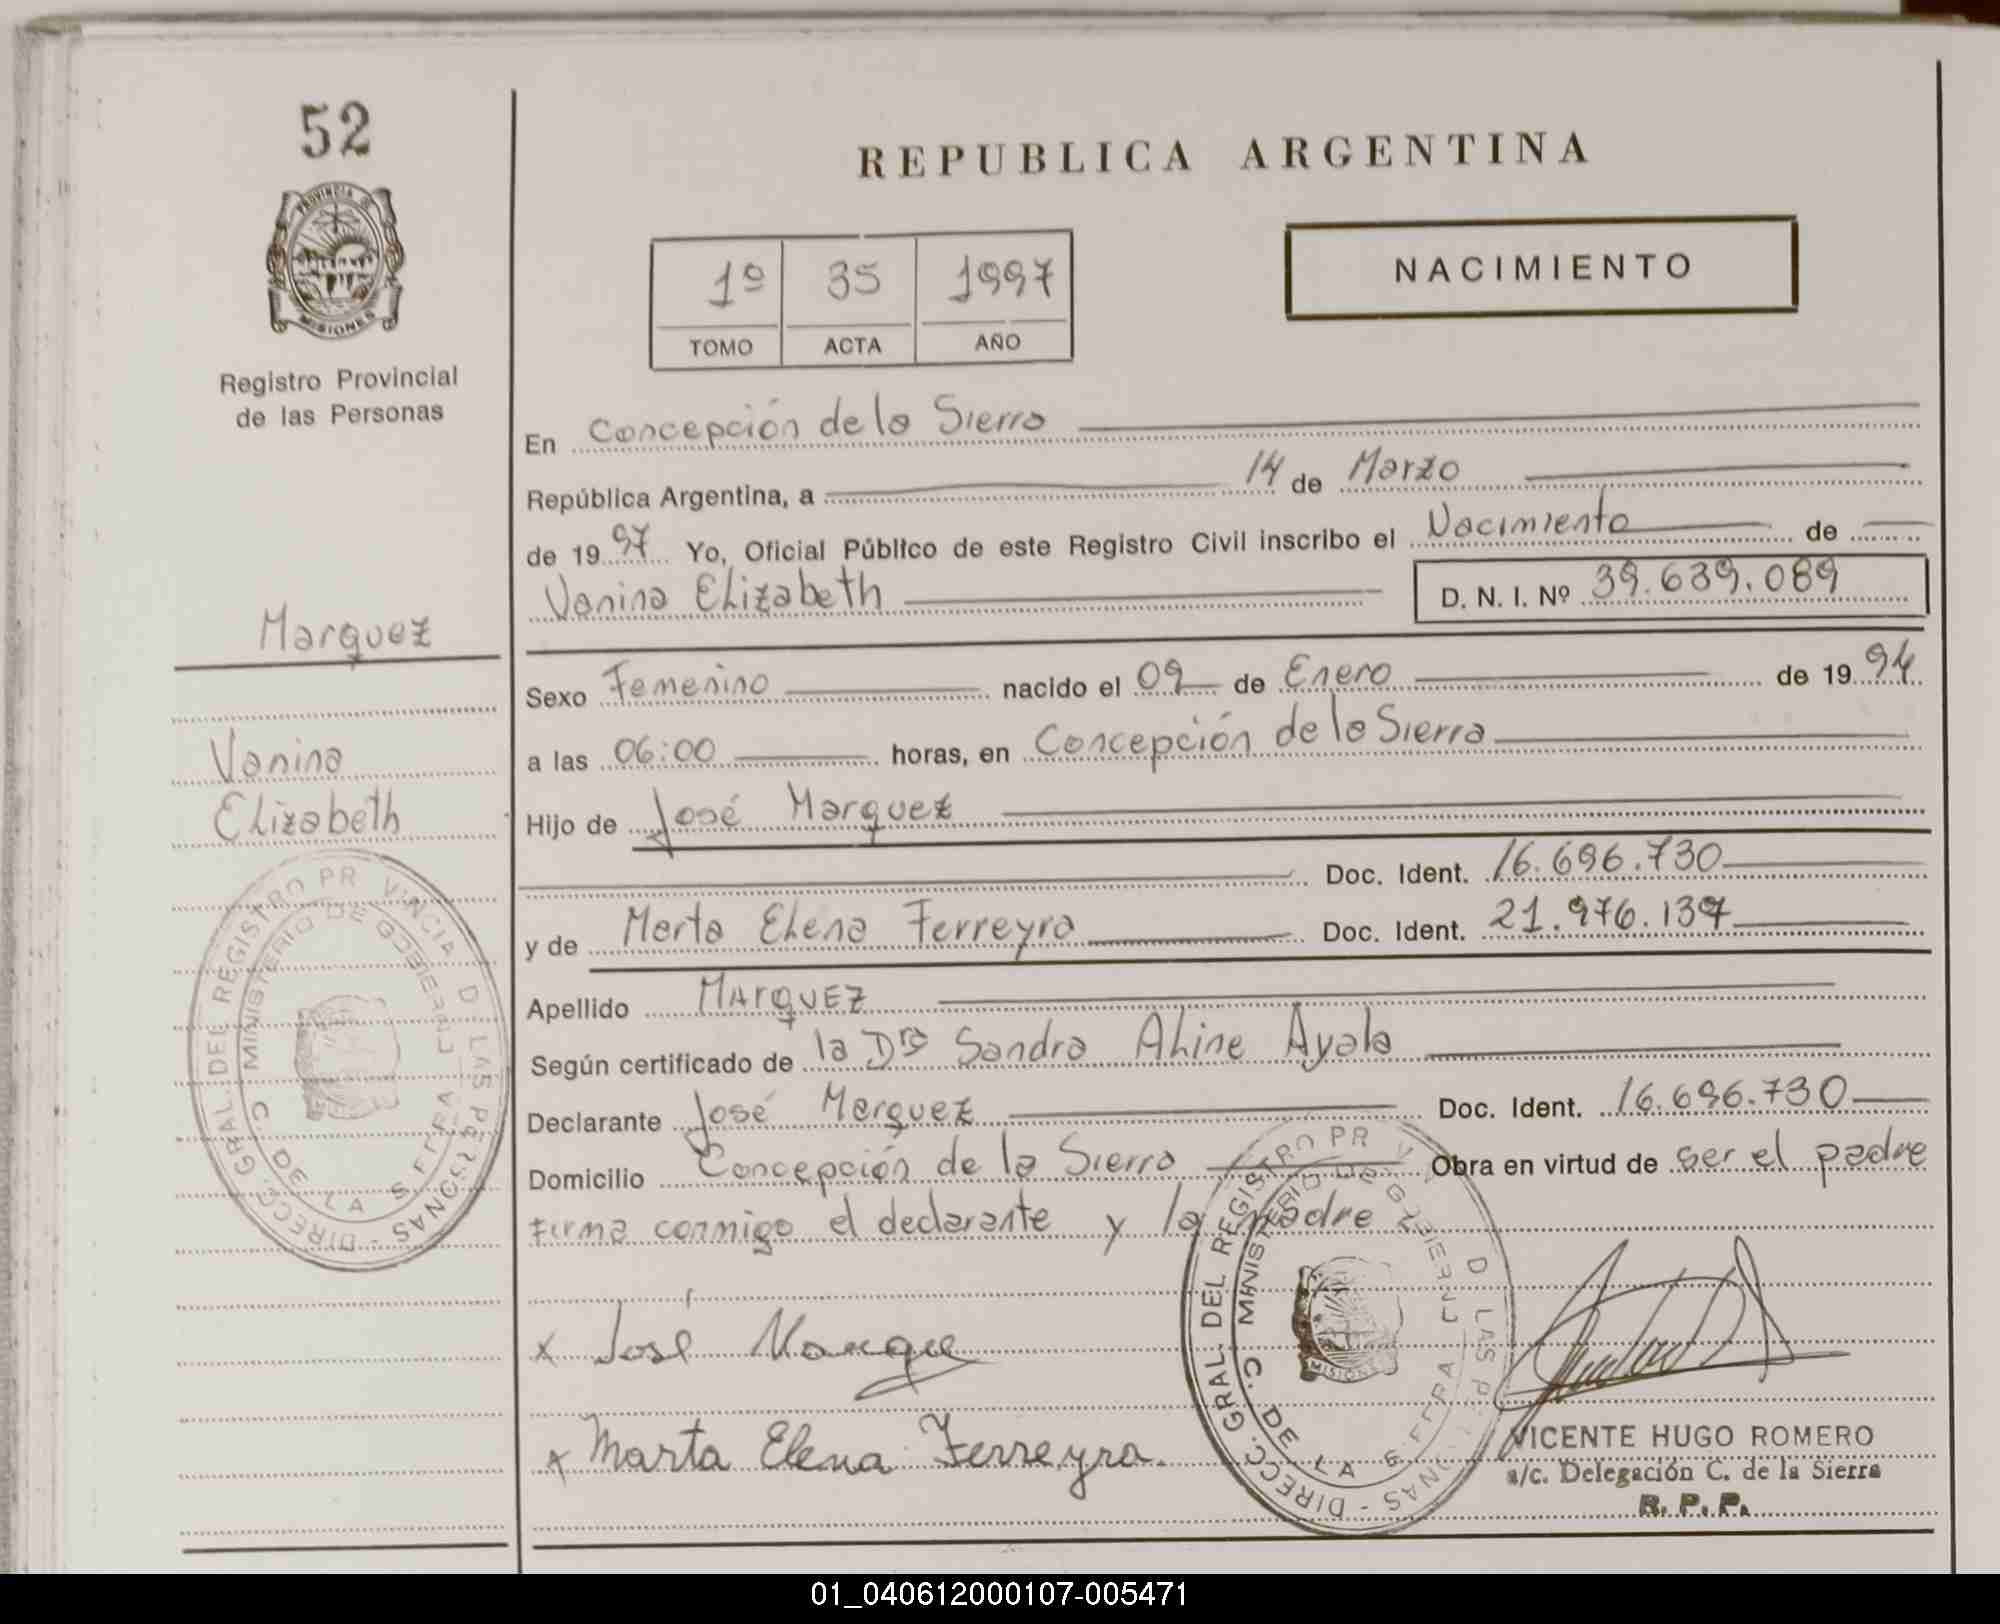 52
PROVINCIA DE
MISIONES
Registro Provincial
de las Personas
Marquez
Vanina
Elizabeth
DIRECC. GRAL. DEL REGISTRO PR VINCIA D LAS PERSONAS -
MINISTERIO DE GOBIERN
C. DE LA S ERRA
REPUBLICA ARGENTINA
1º 35 1997
TOMO ACTA AÑO
NACIMIENTO
En Concepción de la Sierra
República Argentina, a 14 de Marzo
de 19 97 Yo, Oficial Público de este Registro Civil inscribo el Nacimiento de
Vanina Elizabeth D. N. I. Nº 39.639.089
Sexo Femenino nacido el 09 de Enero de 19 94
a las 06:00 horas, en Concepción de la Sierra
Hijo de José Marquez
Doc. Ident. 16.696.730
y de Marta Elena Ferreyra Doc. Ident. 21.976.137
Apellido MARQUEZ
Según certificado de la Dra Sandra Aline Ayala
Declarante José Marquez Doc. Ident. 16.696.730
Domicilio Concepción de la Sierra Obra en virtud de ser el padre
firma conmigo el declarante y la madre
x José Marque
x Marta Elena Ferreyra.
DIRECC. GRAL. DEL REGISTRO PR V D LAS P NAS -
MINISTERIO DE GOBIERN
C. DE LA S ERRA
MISIONES
VICENTE HUGO ROMERO
a/c. Delegación C. de la Sierra
R. P. P.
01_040612000107-005471